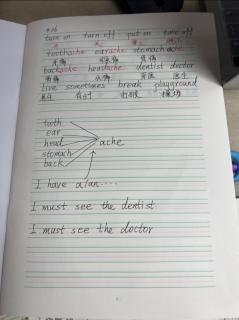 turn on turn off put on take off
开 关 穿上 脱下
toothache earache stomachache
牙痛 耳痛 胃痛
backache headache dentist doctor
背痛 头痛 牙医 医生
live sometimes break playground
有时 打破 操场
tooth
ear
head
stomach
back
ache
I have a/an....
I must see the dentist.
I must see the doctor